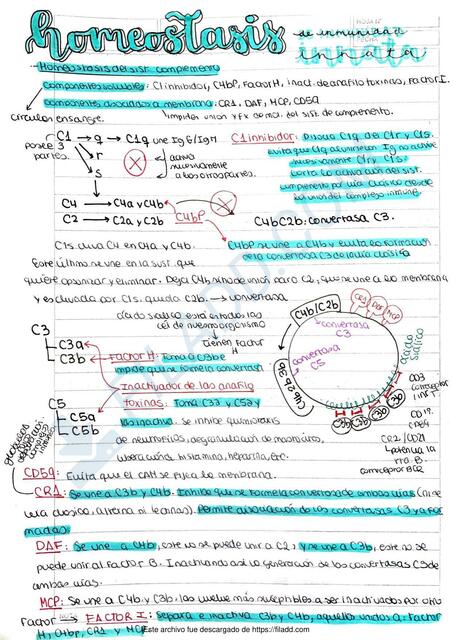 homeostasis
de inmunidad
innata
Homeostasis del sist. complemento
Componentes solubles: C1 inhibidor, C4bP, Factor H, inact. de anafilotoxinas, Factor I.
componentes asociados a membrana: CR1, DAF, MCP, CD59
circulan en sangre.
impiden union y fx de mol. del sist. de complemento.
C1 → q → C1q une IgG/IgM
posee 3 partes.
r
s
activa
nuevamente
a las otras partes.
C1 inhibidor: Disocia C1q del C1r y C1s.
evita que C1q al unirse a Ig no active
nuevamente C1r y C1s.
corta la activación del sist.
complemento por vía clásica desde
la unión del complejo inmune
C4 → C4a y C4b
C2 → C2a y C2b
C4bP
C4bC2b: convertasa C3.
C1s cliva C4 en C4a y C4b.
Este último se une en la sust. que
quiere opsonizar y eliminar. Deja C4b sitio de unión para C2, que se une a la membrana
y es clivada por C1s. queda C2b → convertasa
C4bP se une a C4b y evita la formación
de la convertasa C3 de la vía clásica
ácido siálico está en todas las
cél de nuestro organismo
tienen Factor
H
C3
C3a
C3b → Factor H: Toma C3b e
impide que se forme la convertasa
Inactivador de las anafilo
toxinas: Toma C3a y C5a y
las inactiva. Se inhibe quimiotaxis
de neutrófilos, degranulación de mastocitos,
liberación histamina, heparina, etc.
C5
C5a
C5b
C4b/C2b
convertasa
C3
convertasa
C5
C4b2b3b
CR1 DAF MCP
ácido siálico
C3b C3b C3b
CD19
CR2/CD21
CD59: Evita que el CAM se fije a la membrana.
CR1: Se une a C3b y C4b. Inhibe que se forme la convertasa de ambas vías (ni se
una clásica, alterna ni lectinas). Permite disociación de las convertasas C3 ya for
madas.
DAF: Se une a C4b, este no se puede unir a C2, y se une a C3b, este no se
puede unir al Factor B. Inactivando así la generación de las convertasas C3 de
ambas vías.
MCP: Se une a C4b y C3b, las vuelve más susceptibles a ser inactivadas por otro
Factor → FACTOR I: Separa e inactiva C3b y C4b, aquellas unidas a: Factor
H, C4bP, CR1 y MCP
Este archivo fue descargado de https://filadd.com
FILADD.COM